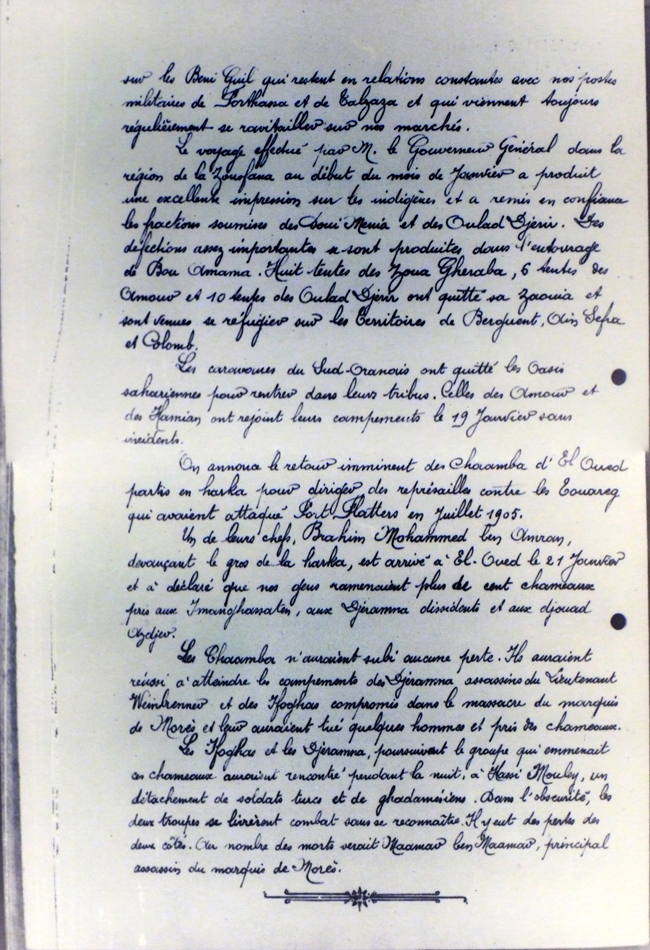 sur les Beni Guil qui restent en relations constantes avec nos postes
militaires de Forthassa et de Talzaza et qui viennent toujours
régulièrement se ravitailler sur nos marchés.
Le voyage effectué par M. le Gouverneur Général dans la
région de la Zousfana au début du mois de Janvier a produit
une excellente impression sur les indigènes et a remis en confiance
les fractions soumises des Doui Menia et des Oulad Djerir. Des
défections assez importantes se sont produites dans l'entourage
de Bou Amama. Huit tentes des Zoua Gheraba, 6 tentes des
Amour et 10 tentes des Oulad Djerir ont quitté sa Zaouia et
sont venues se réfugier sur les Territoires de Berguent, Aïn Sefra
et Colomb.
Les caravanes du Sud-Oranais ont quitté les Oasis
sahariennes pour rentrer dans leurs tribus. Celles des Amour et
des Hamian ont rejoint leurs campements le 19 Janvier sans
incidents.
On annonce le retour imminent des Chaamba d'El Oued
partis en harka pour diriger des représailles contre les Touareg
qui avaient attaqué Fort Flatters en Juillet 1905.
Un de leurs chefs, Brahim Mohammed ben Amran,
devançant le gros de la harka, est arrivé à El-Oued le 21 Janvier
et a déclaré que nos gens ramenaient plus de cent chameaux
pris aux Imanghassaten, aux Djeramna dissidents et aux djouad
Azdjer.
Les Chaamba n'auraient subi aucune perte. Ils auraient
réussi à atteindre les campements des Djéramna assassins du Lieutenant
Weinbrenner et des Ifoghas compromis dans le massacre du marquis
de Morès et leur auraient tué quelques hommes et pris des chameaux.
Les Ifoghas et les Djéramna, poursuivant le groupe qui emmenait
ces chameaux auraient rencontré pendant la nuit, à Hassi Mouley, un
détachement de soldats turcs et de ghadamésiens. Dans l'obscurité, les
deux troupes se livrèrent combat sans se reconnaître. Il y eut des pertes des
deux côtés. Au nombre des morts serait Maamar ben Maamar, principal
assassin du marquis de Morès.